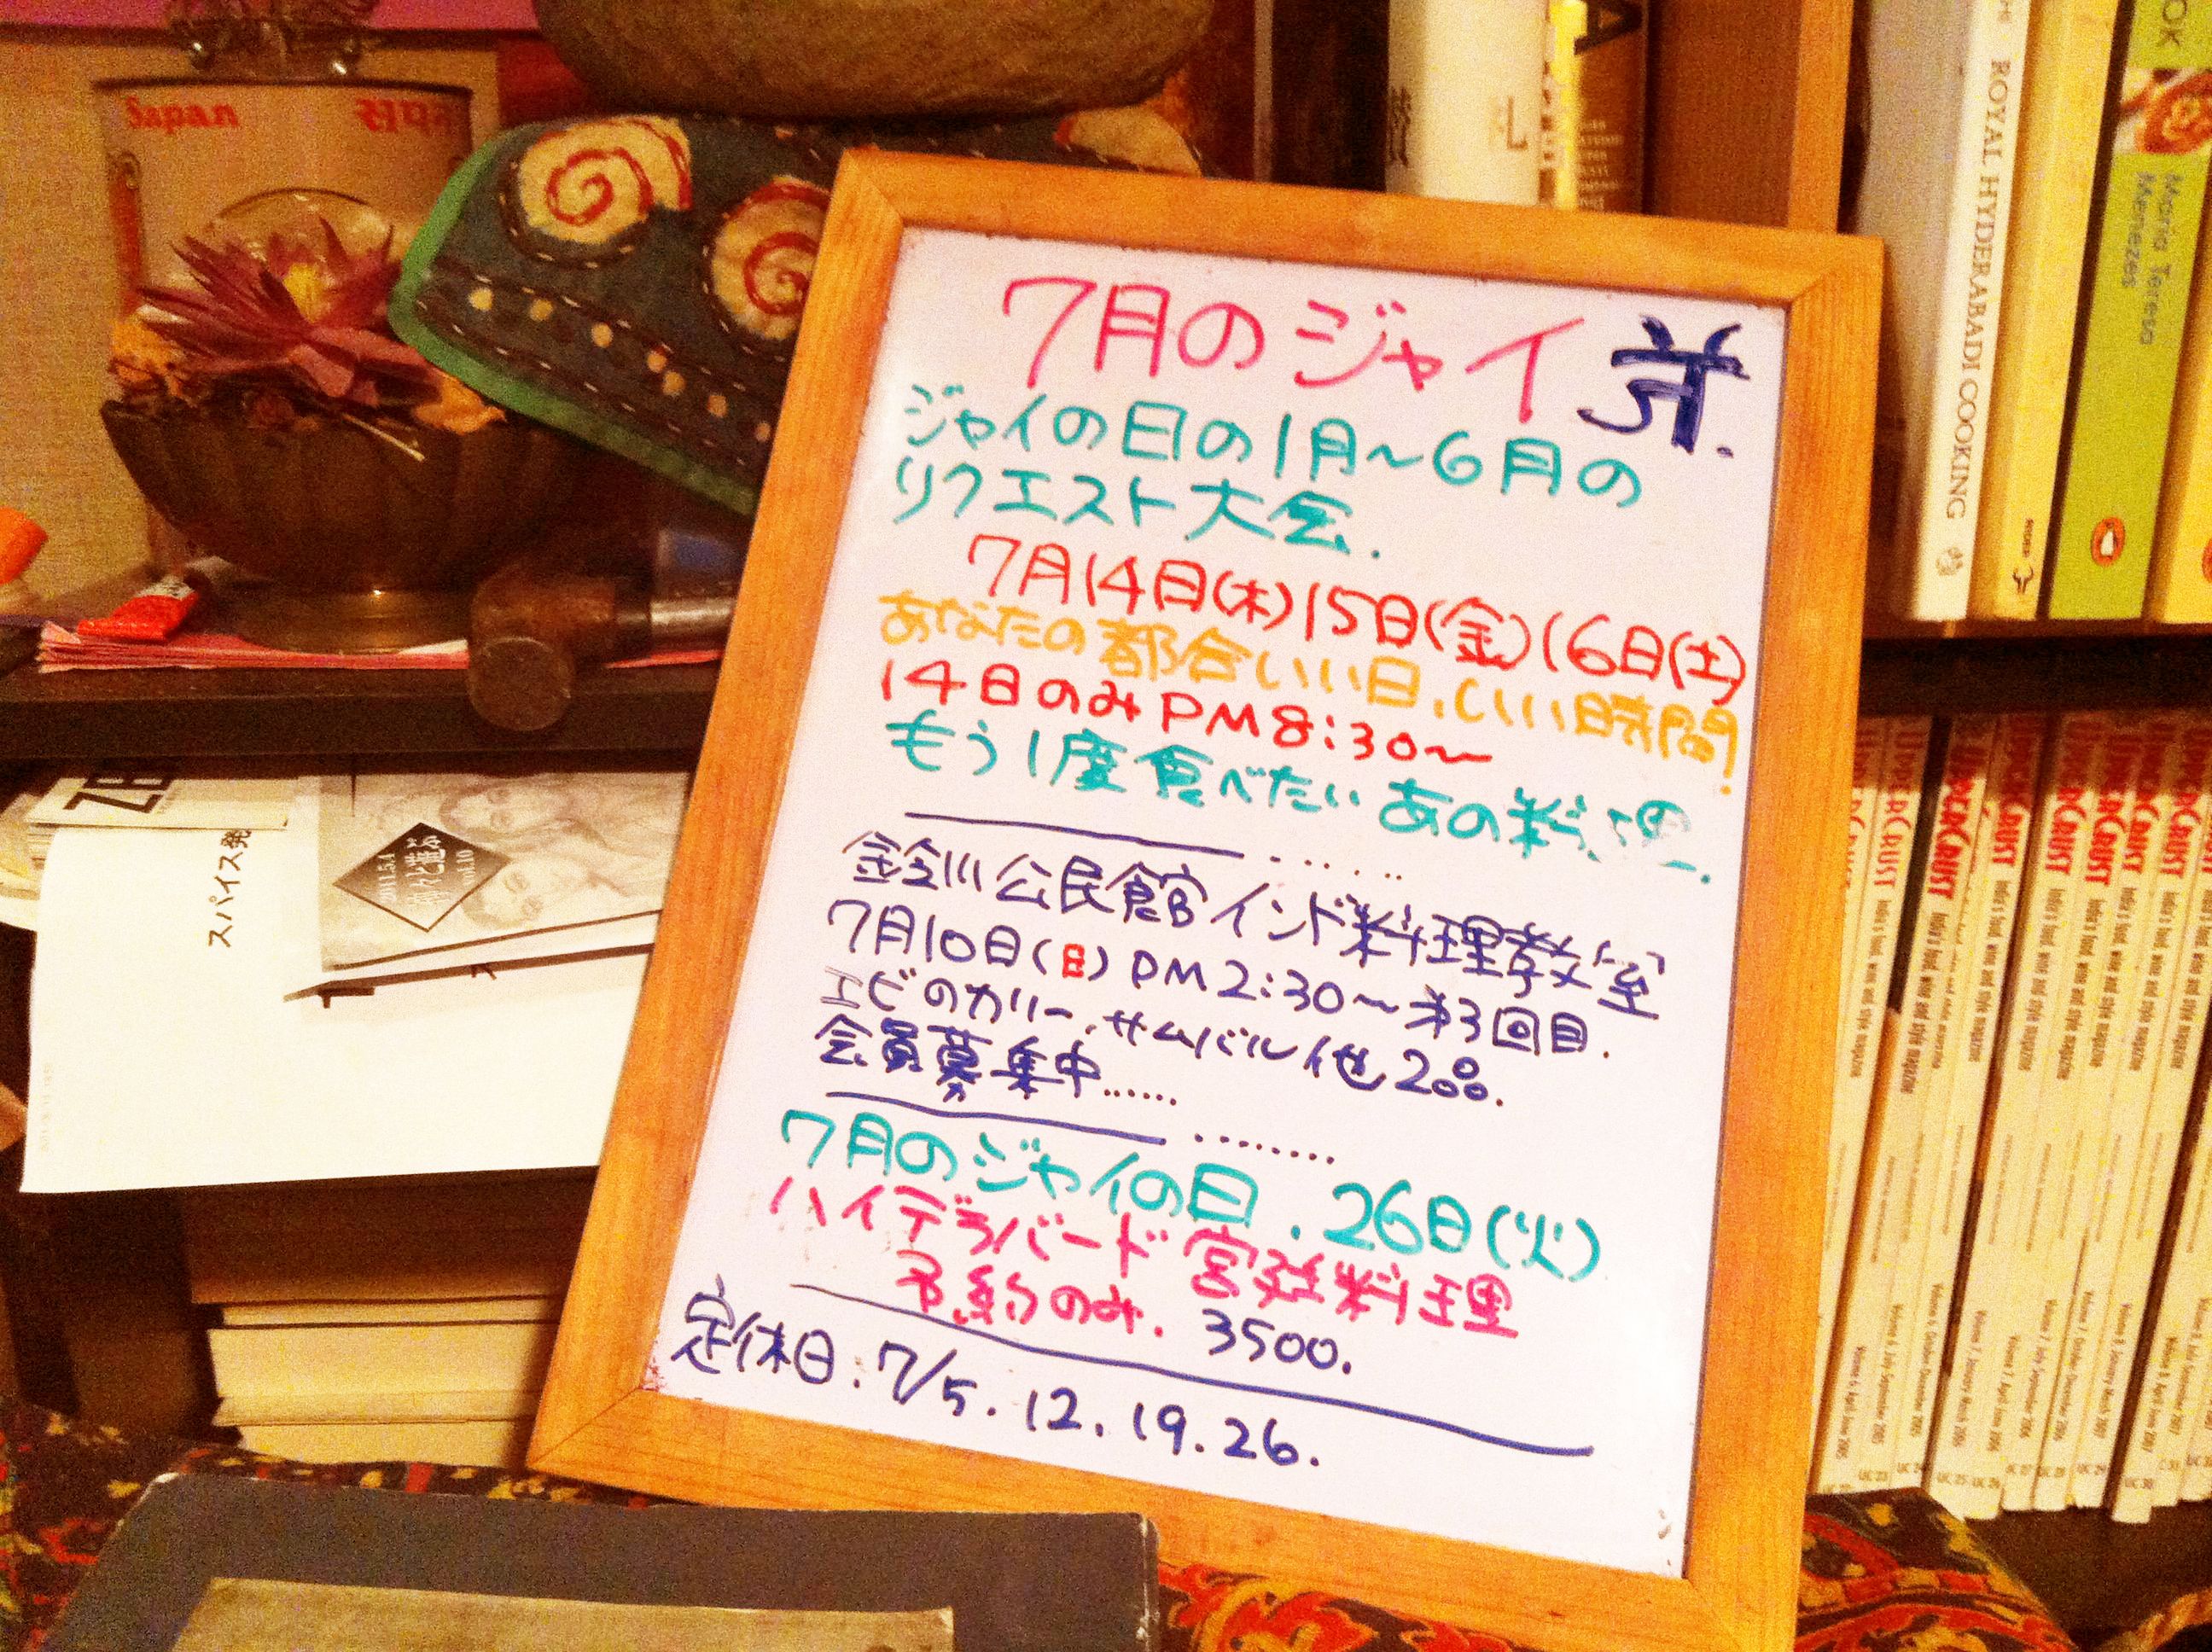 Sapan
सपन
7月のジャイ
ジャイの日の1月〜6月の
リクエスト大会.
7月14日(木)15日(金)16日(土)
あなたの都合いい日.いい時間!
14日のみPM8:30〜
もう1度食べたいあの料理.
鈴川公民館インド料理教室
7月10日(日)PM2:30〜第3回目.
エビのカリー.サムバル他
会員募集中......
7月のジャイの日.26日(火)
ハイデラバード宮廷料理
予約のみ. 3500.
定休日.7/5.12.19.26.
スパイス発
ROYAL HYDERABADI COOKING
Maria Teresa
Menezes
UPPERCRUST
India's food, wine and style magazine